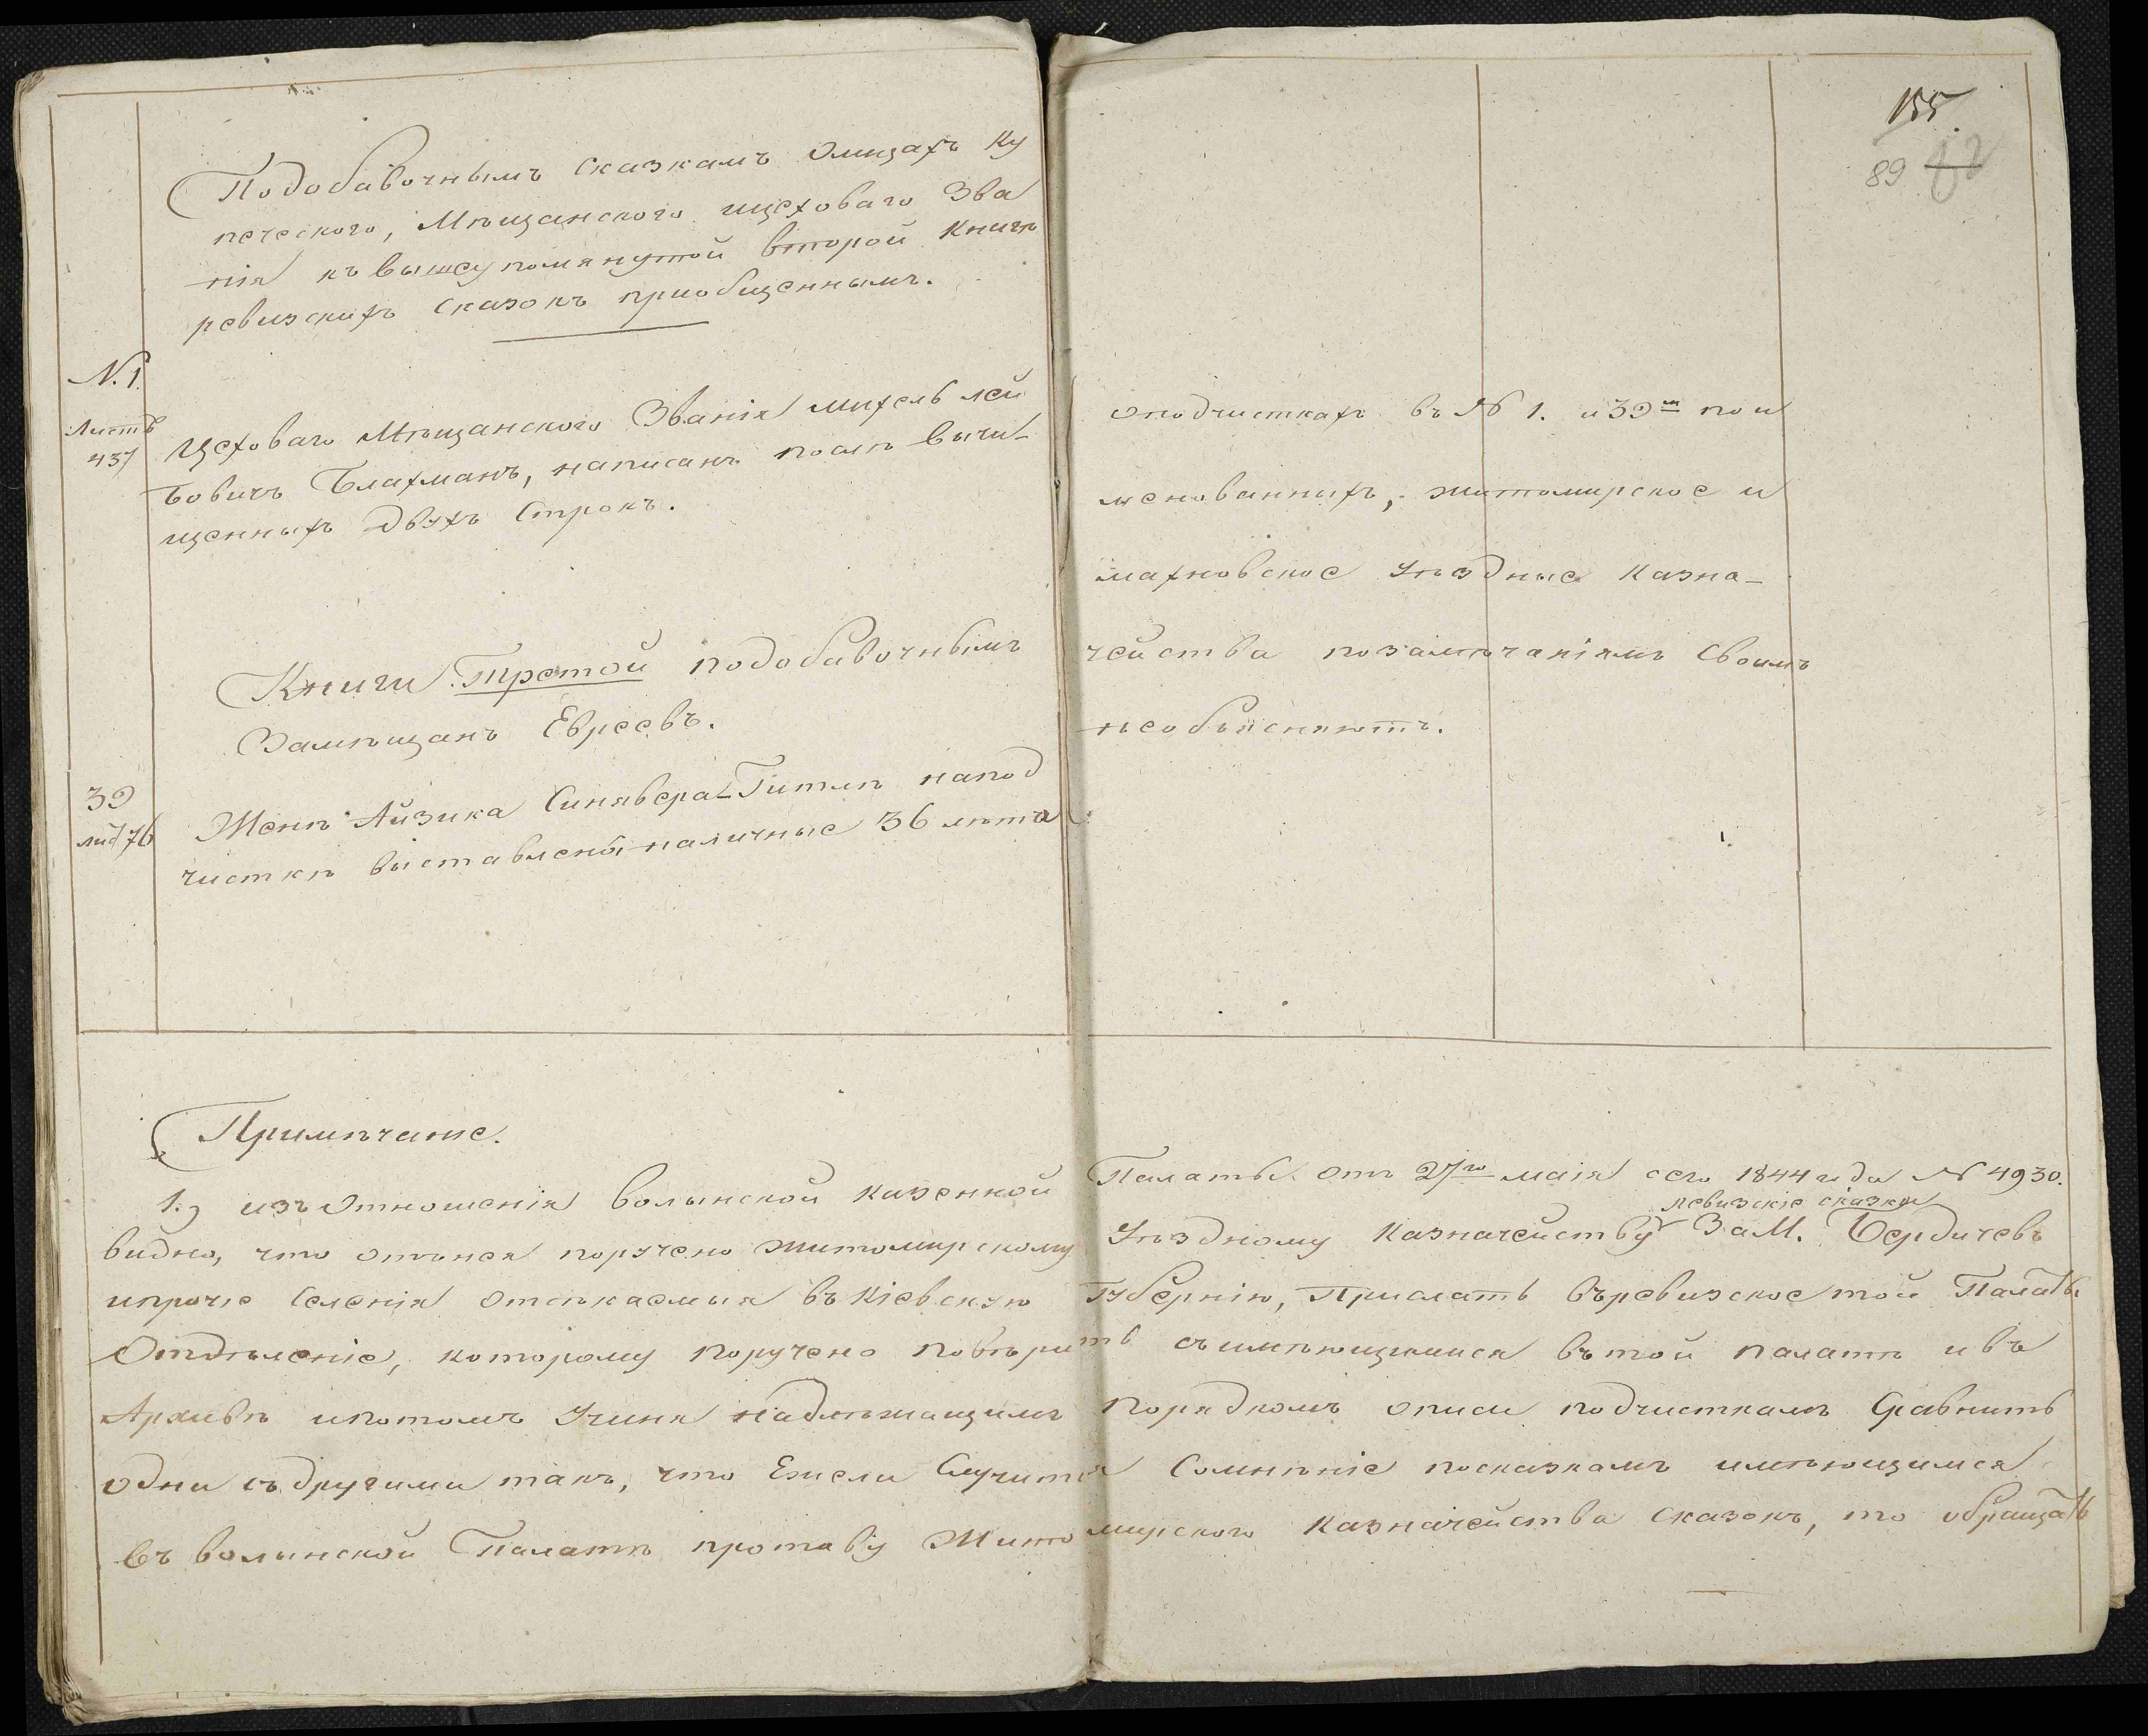 155.
89 82
Подобавочнымъ сказкамъ Олицахъ Ку
печескаго, Мѣщанского ицеховаго Зва
нія къ вышеупомянутой второй Книгѣ
ревизскихъ Сказокъ приобщеннымъ.
N. 1.
Листъ
437
Цеховаго Мѣщанского Званія михель лей
бовичъ Блахманъ, написанъ послѣ вычи-
щенныхъ двухъ Строкъ.
Книги Третой подобавочнымъ
Замѣщанъ Евреевъ.
39
лис 76
Женѣ Айзика Синявера-Гитлѣ напод
чисткѣ выставлены наличные 36 лѣта
оподчисткахъ въ № 1. и 39 м пои
менованныхъ, житомирское и
махновское уѣздные Казна-
чейства позамѣчаніямъ Своимъ
необъясняютъ.
Примѣчаніе.
1.) изъ Отношенія волынской казенной Палаты отъ 27го маія сего 1844 года № 4930.
ревизскіе сказки
видно, что отънея поручено житомирскому Уѣздному Казначейству За М. Бердичевъ
ипрочіе Селенія отсѣкаемыя въ Кіевскую Губернію, Прислать въревизское той Палаты
Отдѣленіе, которому поручено повѣрить съимѣющимися вътой палатѣ ивъ
Архивѣ ипотомъ Учиня надлѣжащимъ порядкомъ описи подчисткамъ Сравнить
одни съдругими такъ, что Ежели Случится Сомнѣніе посказкамъ имѣющимся
въ волынской Палатѣ противу Житомирского Казначейства сказокъ, то обращать